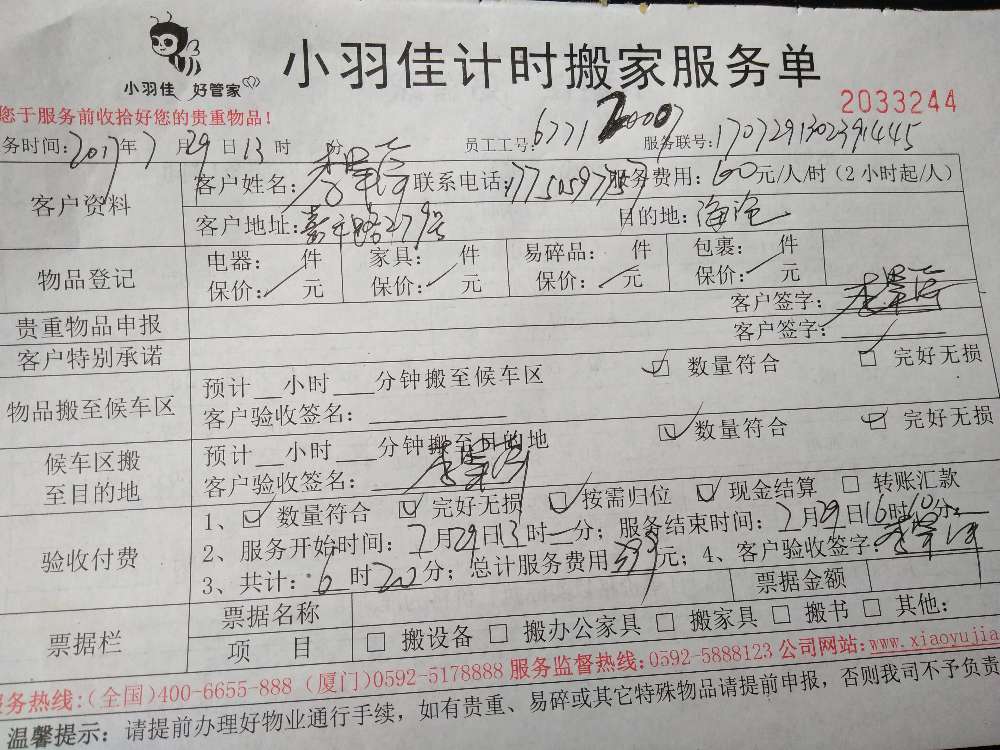 小羽佳 好管家
小羽佳计时搬家服务单
2033244
您于服务前收拾好您的贵重物品！
务时间：2017年7月29日13时 分 员工工号：6771 20007 服务联号：17072913023914445
客户资料
客户姓名： 联系电话： 服务费用：60元/人/时（2小时起/人）
客户地址：嘉禾路279号 目的地：海沧
物品登记
电器： 件 家具： 件 易碎品： 件 包裹： 件
保价： 元 保价： 元 保价： 元 保价： 元
贵重物品申报 客户签字：
客户特别承诺 客户签字：
物品搬至候车区
预计__小时___分钟搬至候车区 数量符合 完好无损
客户验收签名：
候车区搬至目的地
预计__小时___分钟搬至目的地 数量符合 完好无损
客户验收签名：
验收付费
1、 数量符合 完好无损 按需归位 现金结算 转账汇款
2、服务开始时间：7月29日13时 分；服务结束时间：7月29日16时10分
3、共计：6时20分；总计服务费用 元；4、客户验收签字：
票据栏
票据名称 票据金额
项 目 搬设备 搬办公家具 搬家具 搬书 其他：
服务热线：（全国）400-6655-888（厦门）0592-5178888 服务监督热线：0592-5888123 公司网站：www.xiaoyujia
温馨提示：请提前办理好物业通行手续，如有贵重、易碎或其它特殊物品请提前申报，否则我司不予负责